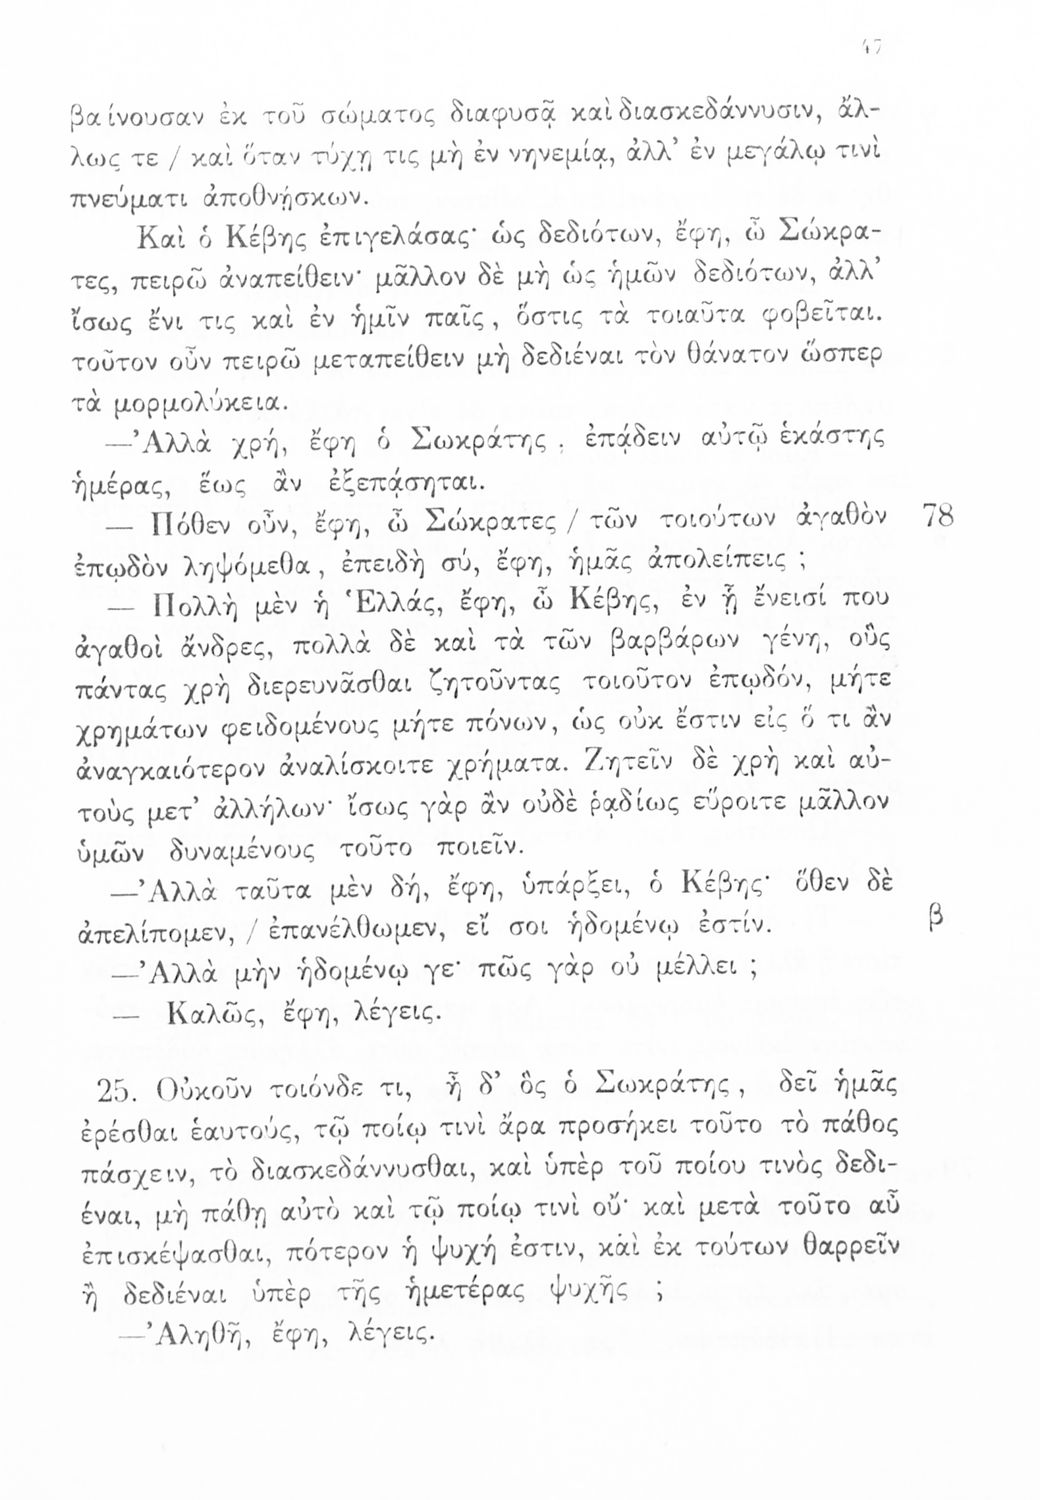 47
βαίνουσαν ἐκ τοῦ σώματος διαφυσᾷ καὶ διασκεδάννυσιν, ἄλ-
λως τε / καὶ ὅταν τύχῃ τις μὴ ἐν νηνεμίᾳ, ἀλλ’ ἐν μεγάλῳ τινὶ
πνεύματι ἀποθνῄσκων.
Καὶ ὁ Κέβης ἐπιγελάσας· ὡς δεδιότων, ἔφη, ὦ Σώκρα-
τες, πειρῶ ἀναπείθειν· μᾶλλον δὲ μὴ ὡς ἡμῶν δεδιότων, ἀλλ’
ἴσως ἔνι τις καὶ ἐν ἡμῖν παῖς, ὅστις τὰ τοιαῦτα φοβεῖται.
τοῦτον οὖν πειρῶ μεταπείθειν μὴ δεδιέναι τὸν θάνατον ὥσπερ
τὰ μορμολύκεια.
—’Αλλὰ χρή, ἔφη ὁ Σωκράτης, ἐπᾴδειν αὐτῷ ἑκάστης
ἡμέρας, ἕως ἂν ἐξεπᾴσηται.
— Πόθεν οὖν, ἔφη, ὦ Σώκρατες / τῶν τοιούτων ἀγαθὸν 78
ἐπῳδὸν ληψόμεθα, ἐπειδὴ σύ, ἔφη, ἡμᾶς ἀπολείπεις ;
— Πολλὴ μὲν ἡ Ἑλλάς, ἔφη, ὦ Κέβης, ἐν ᾗ ἔνεισί που
ἀγαθοὶ ἄνδρες, πολλὰ δὲ καὶ τὰ τῶν βαρβάρων γένη, οὓς
πάντας χρὴ διερευνᾶσθαι ζητοῦντας τοιοῦτον ἐπῳδόν, μήτε
χρημάτων φειδομένους μήτε πόνων, ὡς οὐκ ἔστιν εἰς ὅ τι ἂν
ἀναγκαιότερον ἀναλίσκοιτε χρήματα. Ζητεῖν δὲ χρὴ καὶ αὐ-
τοὺς μετ’ ἀλλήλων· ἴσως γὰρ ἂν οὐδὲ ῥᾳδίως εὕροιτε μᾶλλον
ὑμῶν δυναμένους τοῦτο ποιεῖν.
—’Αλλὰ ταῦτα μὲν δή, ἔφη, ὑπάρξει, ὁ Κέβης· ὅθεν δὲ
ἀπελίπομεν, / ἐπανέλθωμεν, εἴ σοι ἡδομένῳ ἐστίν. β
—’Αλλὰ μὴν ἡδομένῳ γε· πῶς γὰρ οὐ μέλλει ;
— Καλῶς, ἔφη, λέγεις.
25. Οὐκοῦν τοιόνδε τι, ἦ δ’ ὃς ὁ Σωκράτης, δεῖ ἡμᾶς
ἐρέσθαι ἑαυτούς, τῷ ποίῳ τινὶ ἄρα προσήκει τοῦτο τὸ πάθος
πάσχειν, τὸ διασκεδάννυσθαι, καὶ ὑπὲρ τοῦ ποίου τινὸς δεδι-
έναι, μὴ πάθῃ αὐτὸ καὶ τῷ ποίῳ τινὶ οὔ· καὶ μετὰ τοῦτο αὖ
ἐπισκέψασθαι, πότερον ἡ ψυχή ἐστιν, καὶ ἐκ τούτων θαρρεῖν
ἢ δεδιέναι ὑπὲρ τῆς ἡμετέρας ψυχῆς ;
—’Αληθῆ, ἔφη, λέγεις.